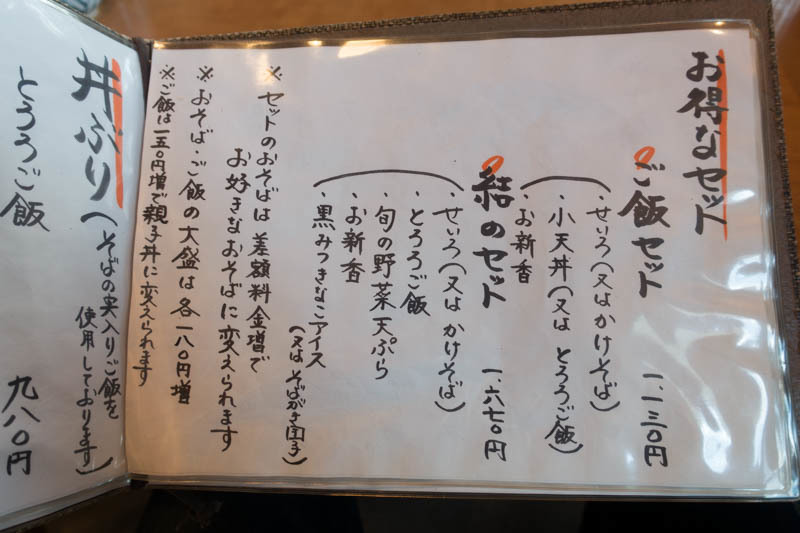 お得なセット
ご飯セット 一、一三〇円
・せいろ(又はかけそば)
・小天丼(又は とろろご飯)
・お新香
結のセット 一、六七〇円
・せいろ(又はかけそば)
・とろろご飯
・旬の野菜天ぷら
・お新香
・黒みつきなこアイス
(又はそばがき団子)
※ セットのおそばは 差額料金増で
お好きなおそばに変えられます
※ おそば・ご飯の大盛は 各一八〇円増
※ ご飯は一五〇円増で親子丼に変えられます
丼ぶり(そばの実入りご飯を
使用しております)
とろろご飯 九八〇円